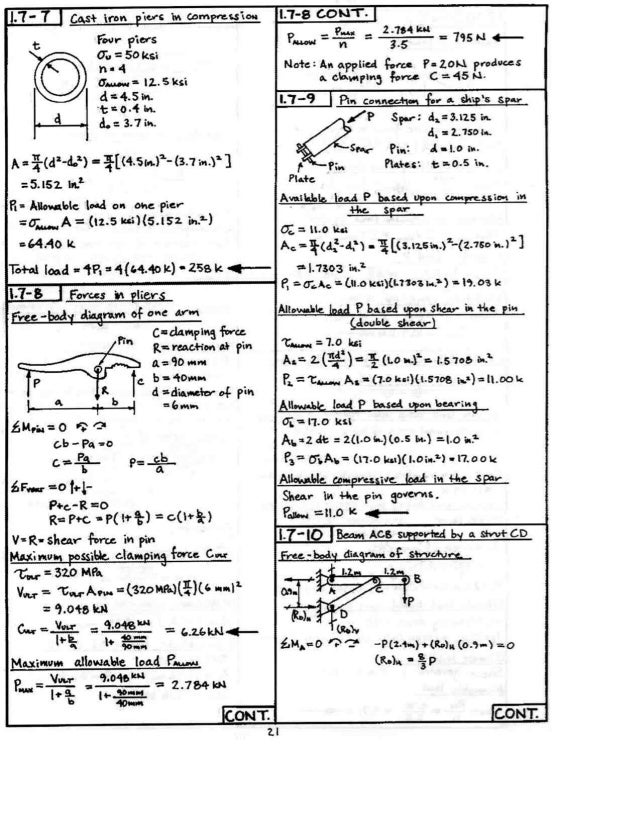 1.7-7 Cast iron piers in compression
Four piers
σᵤ = 50 ksi
n = 4
σ_ALLOW = 12.5 ksi
d = 4.5 in.
t = 0.4 in.
d₀ = 3.7 in.
t
d
A = π/4 (d²-d₀²) = π/4 [(4.5in.)²-(3.7 in.)²]
= 5.152 in²
P₁ = Allowable load on one pier
= σ_ALLOW A = (12.5 ksi)(5.152 in.²)
= 64.40 k
Total load = 4P₁ = 4(64.40 k) = 258 k ←
1.7-8 Forces in pliers
Free-body diagram of one arm
C = clamping force
R = reaction at pin
a = 90 mm
b = 40 mm
d = diameter of pin
= 6 mm
Pin
P
R
C
a
b
ΣM_PIN = 0
Cb - Pa = 0
C = Pa/b P = Cb/a
ΣF_VERT = 0
P+C-R = 0
R = P+C = P(1+a/b) = C(1+b/a)
V = R = shear force in pin
Maximum possible clamping force C_ULT
τ_ULT = 320 MPa
V_ULT = τ_ULT A_PIN = (320 MPa)(π/4)(6 mm)²
= 9.048 kN
C_ULT = V_ULT/(1+b/a) = 9.048 kN/(1+40 mm/90 mm) = 6.26 kN ←
Maximum allowable load P_ALLOW
P_MAX = V_ULT/(1+a/b) = 9.048 kN/(1+90 mm/40 mm) = 2.784 kN
CONT.
1.7-8 CONT.
P_ALLOW = P_MAX/n = 2.784 kN/3.5 = 795 N ←
Note: An applied force P = 20N produces
a clamping force C = 45 N.
1.7-9 Pin connection for a ship's spar
P
Spar
Pin
Plate
Spar: d₂ = 3.125 in.
d₁ = 2.750 in.
Pin: d = 1.0 in.
Plates: t = 0.5 in.
Available load P based upon compression in
the spar
σ_c = 11.0 ksi
A_c = π/4 (d₂²-d₁²) = π/4 [(3.125in.)²-(2.750 in.)²]
= 1.7303 in.²
P₁ = σ_c A_c = (11.0 ksi)(1.7303 in.²) = 19.03 k
Allowable load P based upon shear in the pin
(double shear)
τ_ALLOW = 7.0 ksi
A_s = 2(πd²/4) = π/2 (1.0 in.)² = 1.5708 in.²
P₂ = τ_ALLOW A_s = (7.0 ksi)(1.5708 in²) = 11.00 k
Allowable load P based upon bearing
σ_b = 17.0 ksi
A_b = 2 dt = 2(1.0 in.)(0.5 in.) = 1.0 in.²
P₃ = σ_b A_b = (17.0 ksi)(1.0 in.²) = 17.00 k
Allowable compressive load in the spar
Shear in the pin governs.
P_allow = 11.0 K ←
1.7-10 Beam ACB supported by a strut CD
Free-body diagram of structure
1.2m 1.2m
0.9m
A
C
B
P
D
(R_D)_H
(R_D)_V
ΣM_A = 0 -P(2.4m) + (R_D)_H (0.9m) = 0
(R_D)_H = 8/3 P
CONT.
21